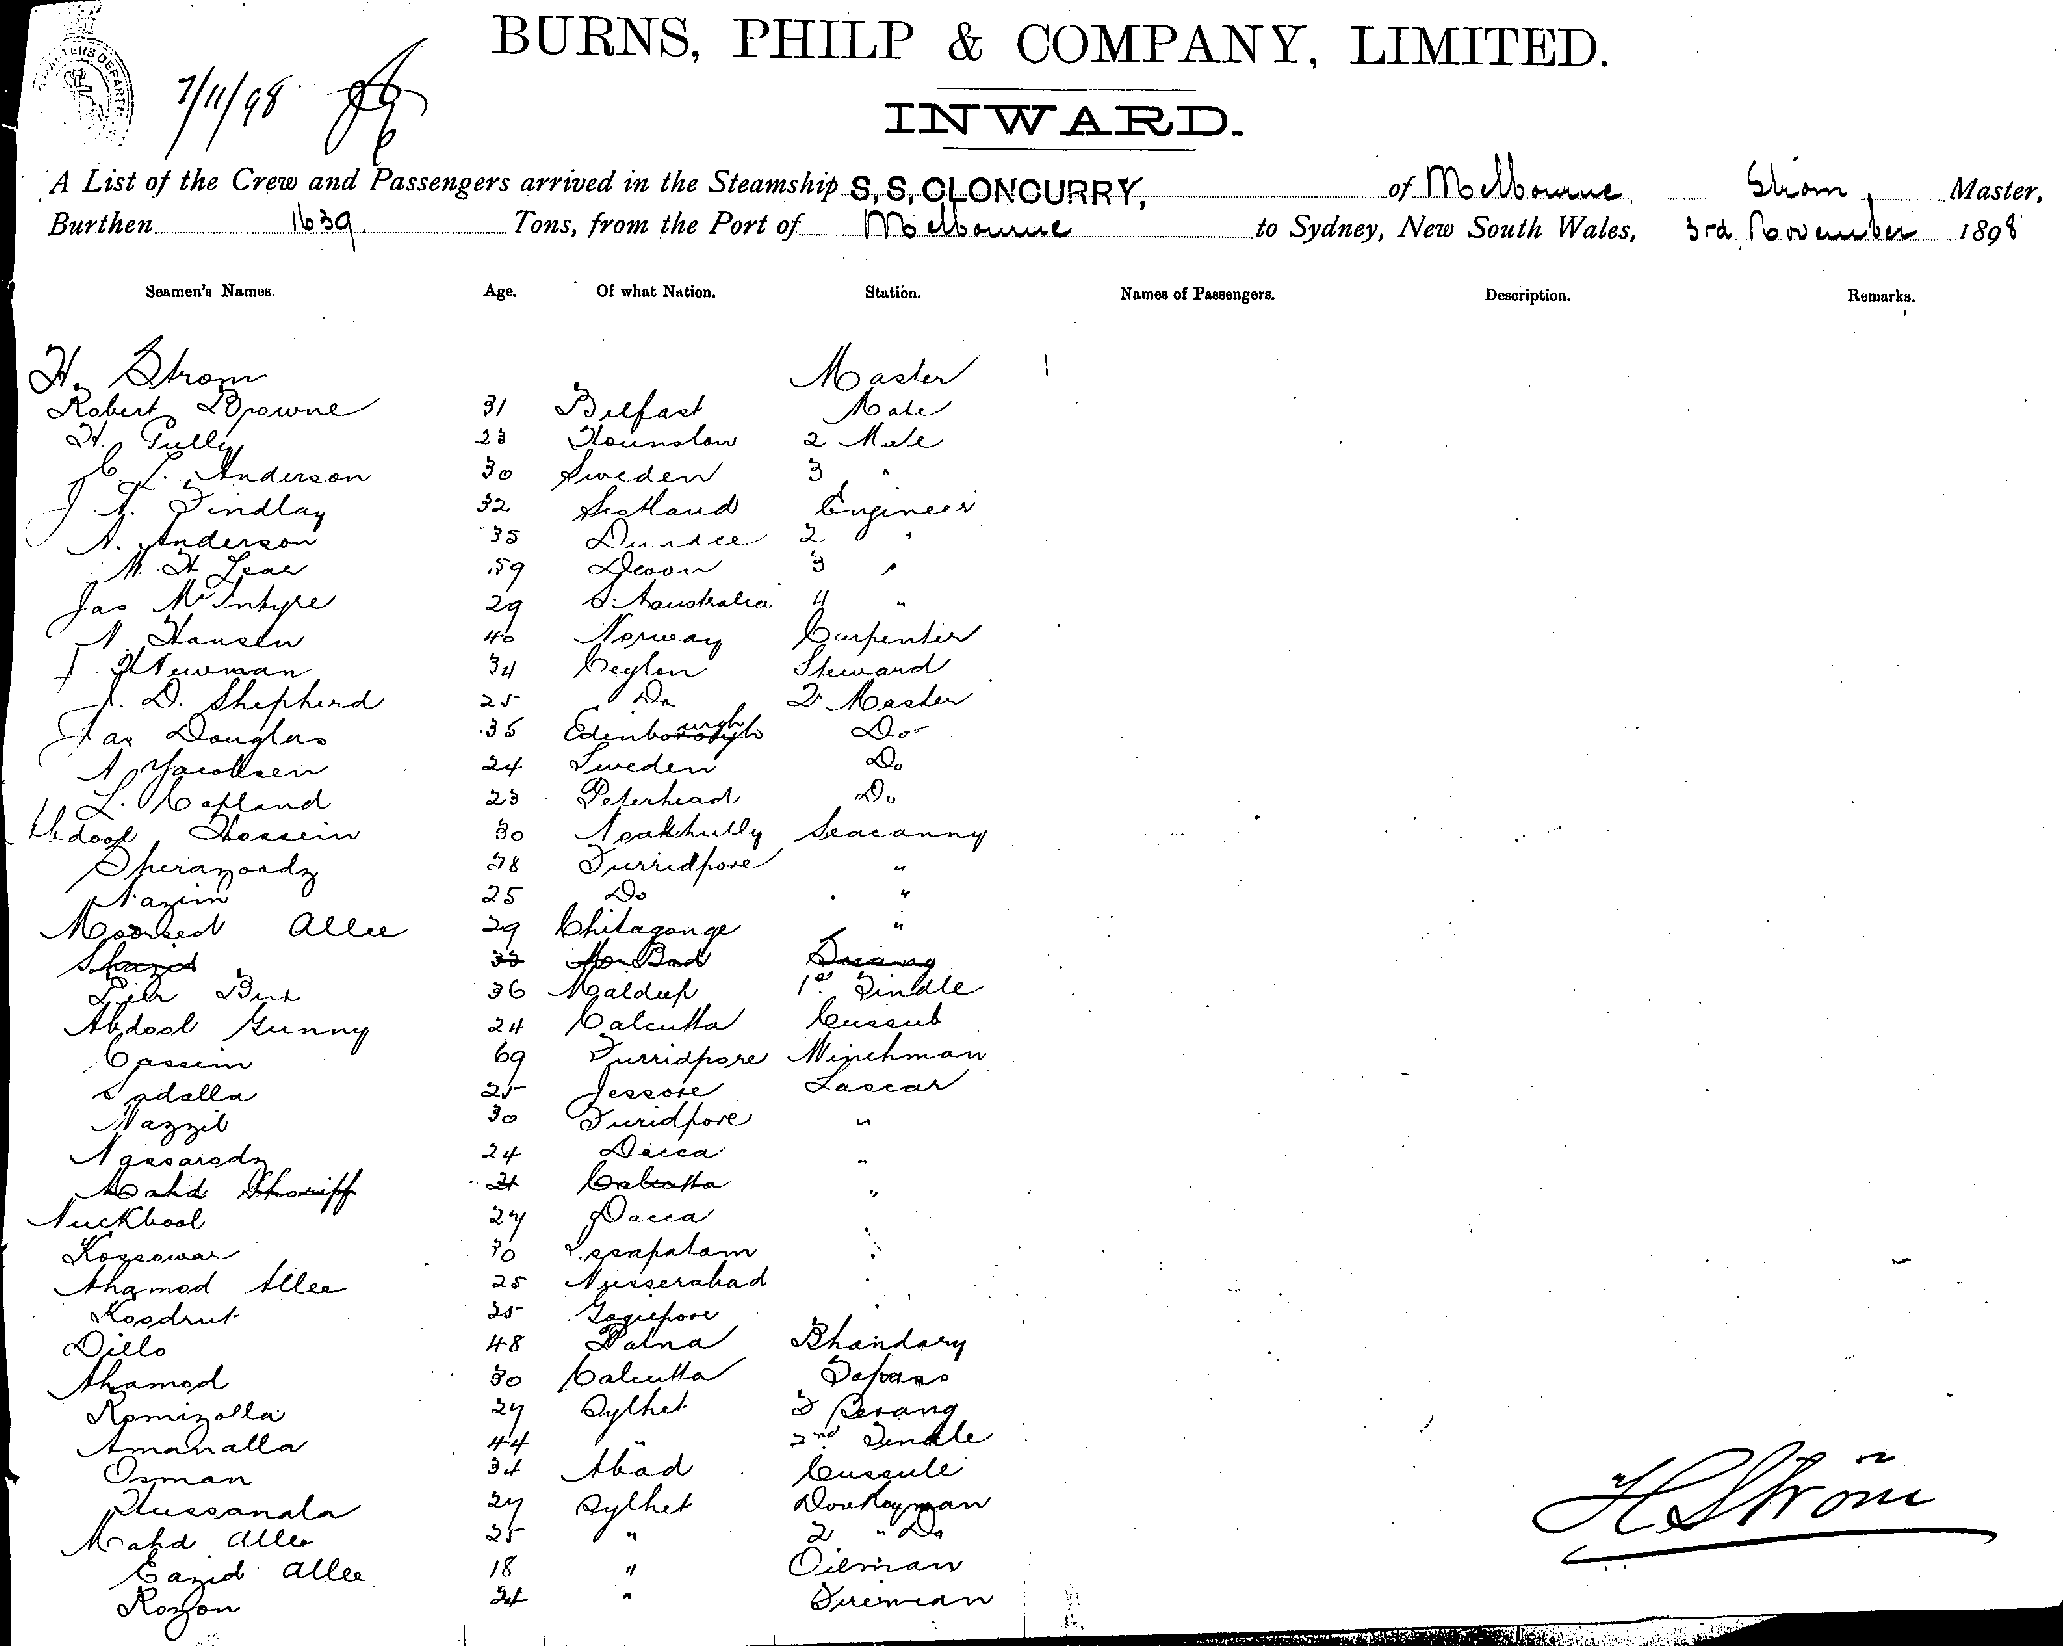 BURNS, PHILP & COMPANY, LIMITED.
7/11/98
INWARD.
A List of the Crew and Passengers arrived in the Steamship S,S, CLONCURRY, of Melbourne Strom, Master,
Burthen 1639 Tons, from the Port of Melbourne to Sydney, New South Wales, 3rd November 1898
Seamen's Names. Age. Of what Nation. Station. Names of Passengers. Description. Remarks.
H. Strom Master
Robert Browne 31 Belfast Mate
H. Pully 23 Hounslow 2 Mate
C L. Anderson 30 Sweden 3 "
J A. Findlay 32 Scotland Engineer
A. Anderson 35 Dundee 2 "
W. H Lear 59 Devon 3 "
Jas McIntyre 29 S. Australia 4 "
N. Hansen 40 Norway Carpenter
J. Newman 34 Ceylon Steward
J. D. Shepherd 25 Do 2 Master
Jas Douglas 35 Edinburgh Do
A Jacobsen 24 Sweden Do
L. Copland 23 Peterhead Do
Abdool Hossein 30 Noakhully Seacunny
28 Furridpore "
Nazim 25 Do "
Allee 29 Chitagonge "
33
36 1st Tindle
Abdool Gunny 24 Calcutta Cussub
Cassim 69 Furridpore Winchman
Sadalla 25 Jessore Lascar
Nazzib 30 Furidpore "
24 Dacca "
Mahd Shoriff 21 Calcutta "
Nuckbool 27 Dacca
Kossowar 30
Ahamod Allee 25 Nusserabad
25
Dillo 48 Patna Bhandary
Ahamod 30 Calcutta Topass
Romizolla 27 Sylhet 2 Serang
Amanalla 44 " 2nd Tindle
Osman 34 Abad
Hussanala 27 Sylhet Donkeyman
Mahd Allee 25 " 2 " Do
Eazid Allee 18 " Oilman
Rozon 24 " Fireman
H Ström